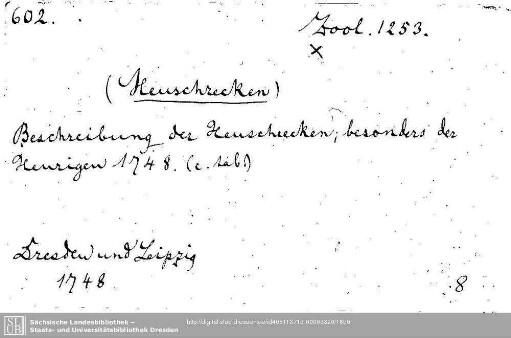 602.
Zool. 1253.
×
(Heuschrecken)
Beschreibung der Heuschrecken, besonders der
Heurigen 1748. (c. tab.)
Dresden und Leipzig
1748
8
SLUB
Sächsische Landesbibliothek –
Staats- und Universitätsbibliothek Dresden